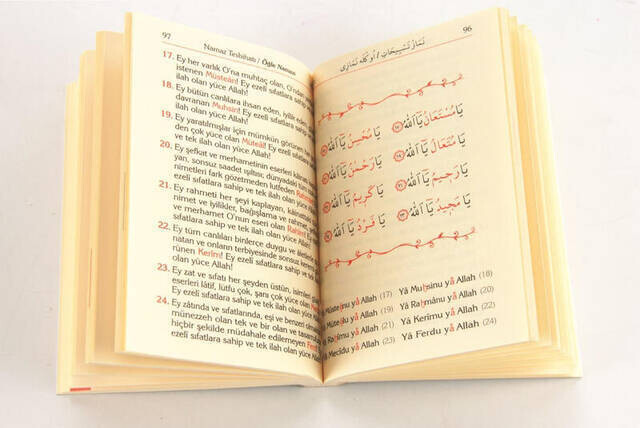 97 Namaz Tesbihatı / Öğle Namazı
17. Ey her varlık O'na muhtaç olan, O'ndan
istenen Müsteân! Ey ezelî sıfatlara sahip
ilah olan yüce Allah!
18. Ey bütün canlılara ihsan eden, iyilik eden,
davranan Muhsin! Ey ezelî sıfatlara sahip
ilah olan yüce Allah!
19. Ey yaratılmışlar için mümkün görünen her
den çok yüce olan Müteâl! Ey ezelî sıfatlara
sahip ve tek ilah olan yüce Allah!
20. Ey şefkat ve merhametinin eserleri kâinatı
yan, sonsuz saadet ışıltısı; dünyadaki tüm
nimetleri fark gözetmeden lütfeden Rahmân
Ey ezelî sıfatlara sahip ve tek ilah olan yüce
21. Ey rahmeti her şeyi kaplayan, kâinattaki
nimet ve iyilikler, bağışlama ve rahmet,
ve merhamet O'nun eseri olan Rahîm!
sıfatlara sahip ve tek ilah olan yüce Allah!
22. Ey tüm canlıları binlerce duygu ve âletlerle
natan ve onların terbiyesinde sonsuz kerem
rünen Kerîm! Ey ezelî sıfatlara sahip ve tek
ilah olan yüce Allah!
23. Ey zat ve sıfatı her şeyden üstün, isimleri
eserleri lâtif, lütfu çok, şanı çok yüce
Ey ezelî sıfatlara sahip ve tek ilah olan yüce
24. Ey zâtında ve sıfatlarında, eşi ve benzeri
münezzeh olan tek ve bir olan ve tasarrufuna
hiçbir şekilde müdahale edilemeyen Ferd
ezelî sıfatlara sahip ve tek ilah olan yüce Allah!
نماز تسبيحاتى / أوكله نمازى 96
يَا مُسْتَعَانُ يَا اَللهُ ﴿١٧﴾ يَا مُحْسِنُ يَا اَللهُ ﴿١٨﴾
يَا مُتَعَالُ يَا اَللهُ ﴿١٩﴾ يَا رَحْمٰنُ يَا اَللهُ ﴿٢٠﴾
يَا رَحِيمُ يَا اَللهُ ﴿٢١﴾ يَا كَرِيمُ يَا اَللهُ ﴿٢٢﴾
يَا مَجِيدُ يَا اَللهُ ﴿٢٣﴾ يَا فَرْدُ يَا اَللهُ ﴿٢٤﴾
Müsteânu yâ Allah (17) Yâ Muhsinu yâ Allah (18)
Müteâlu yâ Allah (19) Yâ Rahmânu yâ Allah (20)
Rahîmu yâ Allah (21) Yâ Kerîmu yâ Allah (22)
Yâ Mecîdu yâ Allah (23) Yâ Ferdu yâ Allah (24)